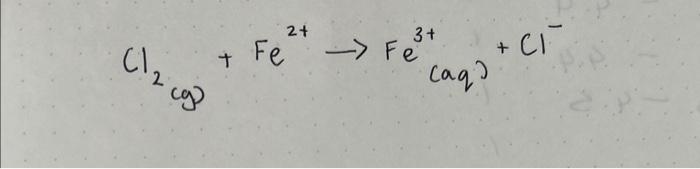 Cl₂(g) + Fe²⁺ → Fe³⁺(aq) + Cl⁻